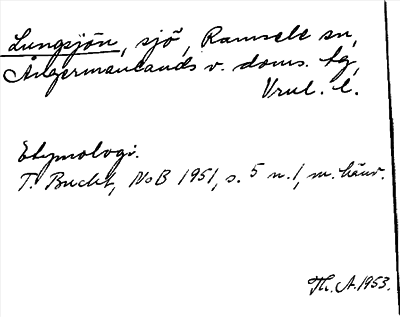 Lungsjön, sjö, Ramsele sn,
Ångermanlands v. doms. tg,
Vnrl. l.
Etymologi.
T. Bucht, NoB 1951, s. 5 n. 1, m. hänv.
Th. A. 1953.